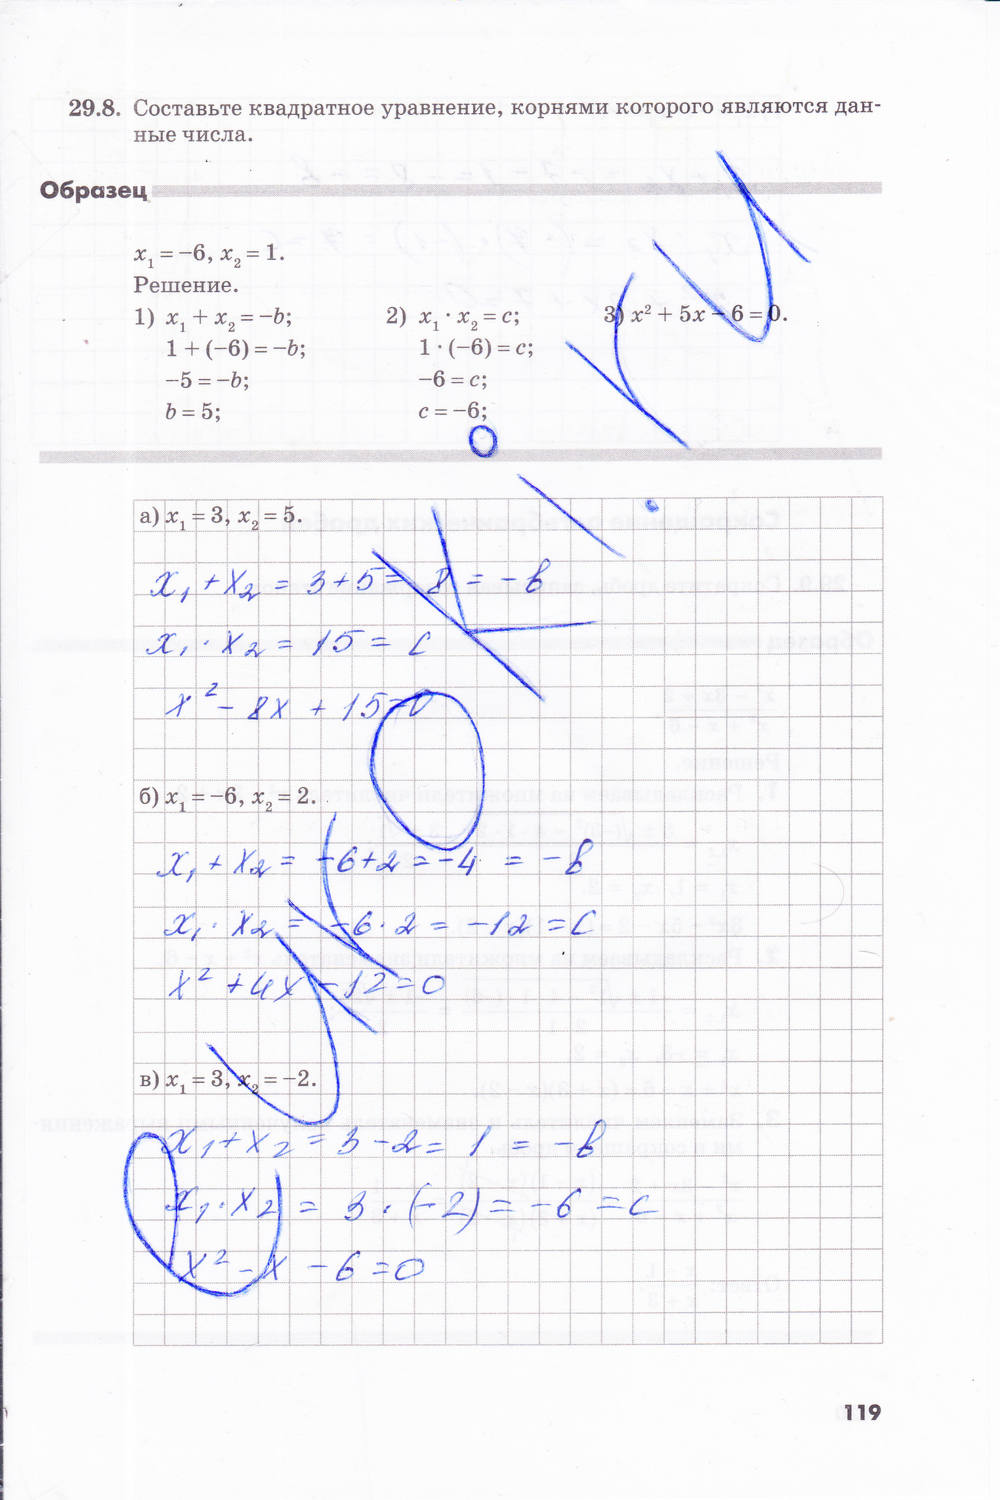 29.8. Составьте квадратное уравнение, корнями которого являются дан-
ные числа.
Образец
x₁ = −6, x₂ = 1.
Решение.
1) x₁ + x₂ = −b; 2) x₁ · x₂ = c; 3) x² + 5x − 6 = 0.
1 + (−6) = −b; 1 · (−6) = c;
−5 = −b; −6 = c;
b = 5; c = −6;
а) x₁ = 3, x₂ = 5.
x₁ + x₂ = 3 + 5 = 8 = −b
x₁ · x₂ = 15 = c
x² − 8x + 15 = 0
б) x₁ = −6, x₂ = 2.
x₁ + x₂ = −6 + 2 = −4 = −b
x₁ · x₂ = −6 · 2 = −12 = c
x² + 4x − 12 = 0
в) x₁ = 3, x₂ = −2.
x₁ + x₂ = 3 − 2 = 1 = −b
x₁ · x₂ = 3 · (−2) = −6 = c
x² − x − 6 = 0
119